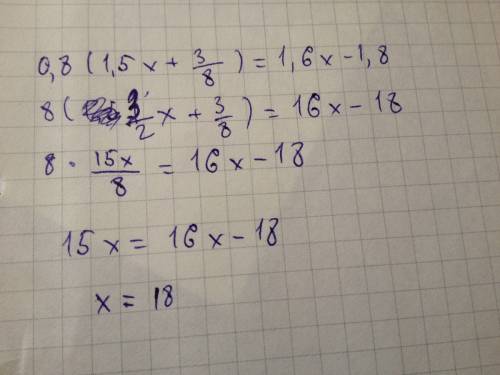 0,8 ( 1,5x + 3/8 ) = 1,6x - 1,8
8 ( 3/2 x + 3/8 ) = 16x - 18
8 · 15x/8 = 16x - 18
15x = 16x - 18
x = 18